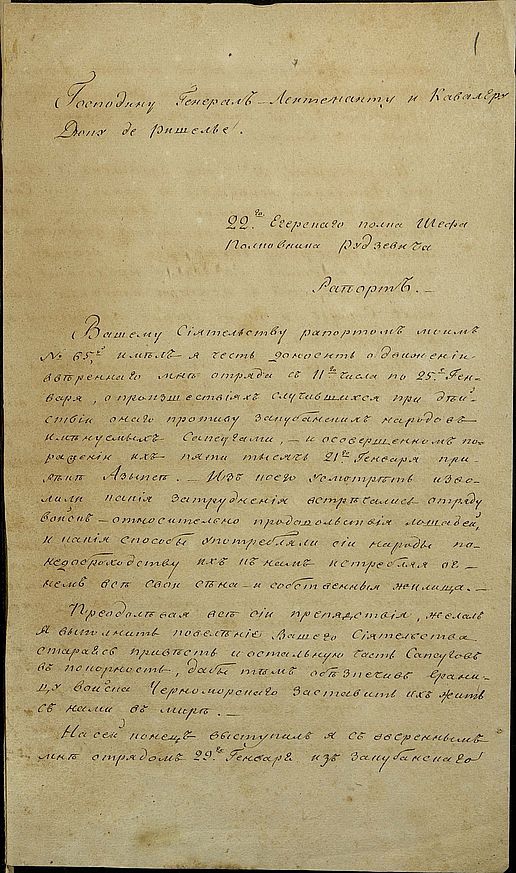 1
Господину Генералъ-Лентенанту и Кавалеру
Дюку де Ришелье.
22го Егерскаго полка Шефа
Полковника Рудзевича
Рапортъ.—
Вашему Сіятельству рапортомъ моимъ
№ 65й имѣлъ я честь доносить о движеніи
ввѣреннаго мнѣ отряда съ 11го числа по 25е Ген-
варя, о произшествіяхъ случившихся при дѣй-
ствіи онаго противу закубанскихъ народовъ
имянуемыхъ Сапсугами, — и осовершенномъ по-
раженіи ихъ пяти тысячъ 21го Генваря при
рѣкѣ Азыпсѣ. — Изъ коего усмотрѣть изво-
лили какія затрудненія встрѣчались отряду
войскъ — относительно продовольствія лошадей,
и какія способы употребляли сіи народы по-
недоброходству ихъ къ намъ истребляя ог-
немъ всѣ свои сѣна — и собственныя жилища. —
Преодолѣвая всѣ сіи препядствія, желалъ
я выполнить повелѣніе Вашего Сіятельства
стараясь привѣсть и остальную часть Сапсуговъ
въ покорность, дабы тѣмъ обѣзпечивъ грани-
цу войска Черноморскаго заставить ихъ жить
съ нами въ мирѣ. —
На сей конецъ выступилъ я съ ввереннымъ
мнѣ отрядомъ 29го Генваря изъ закубанскаго